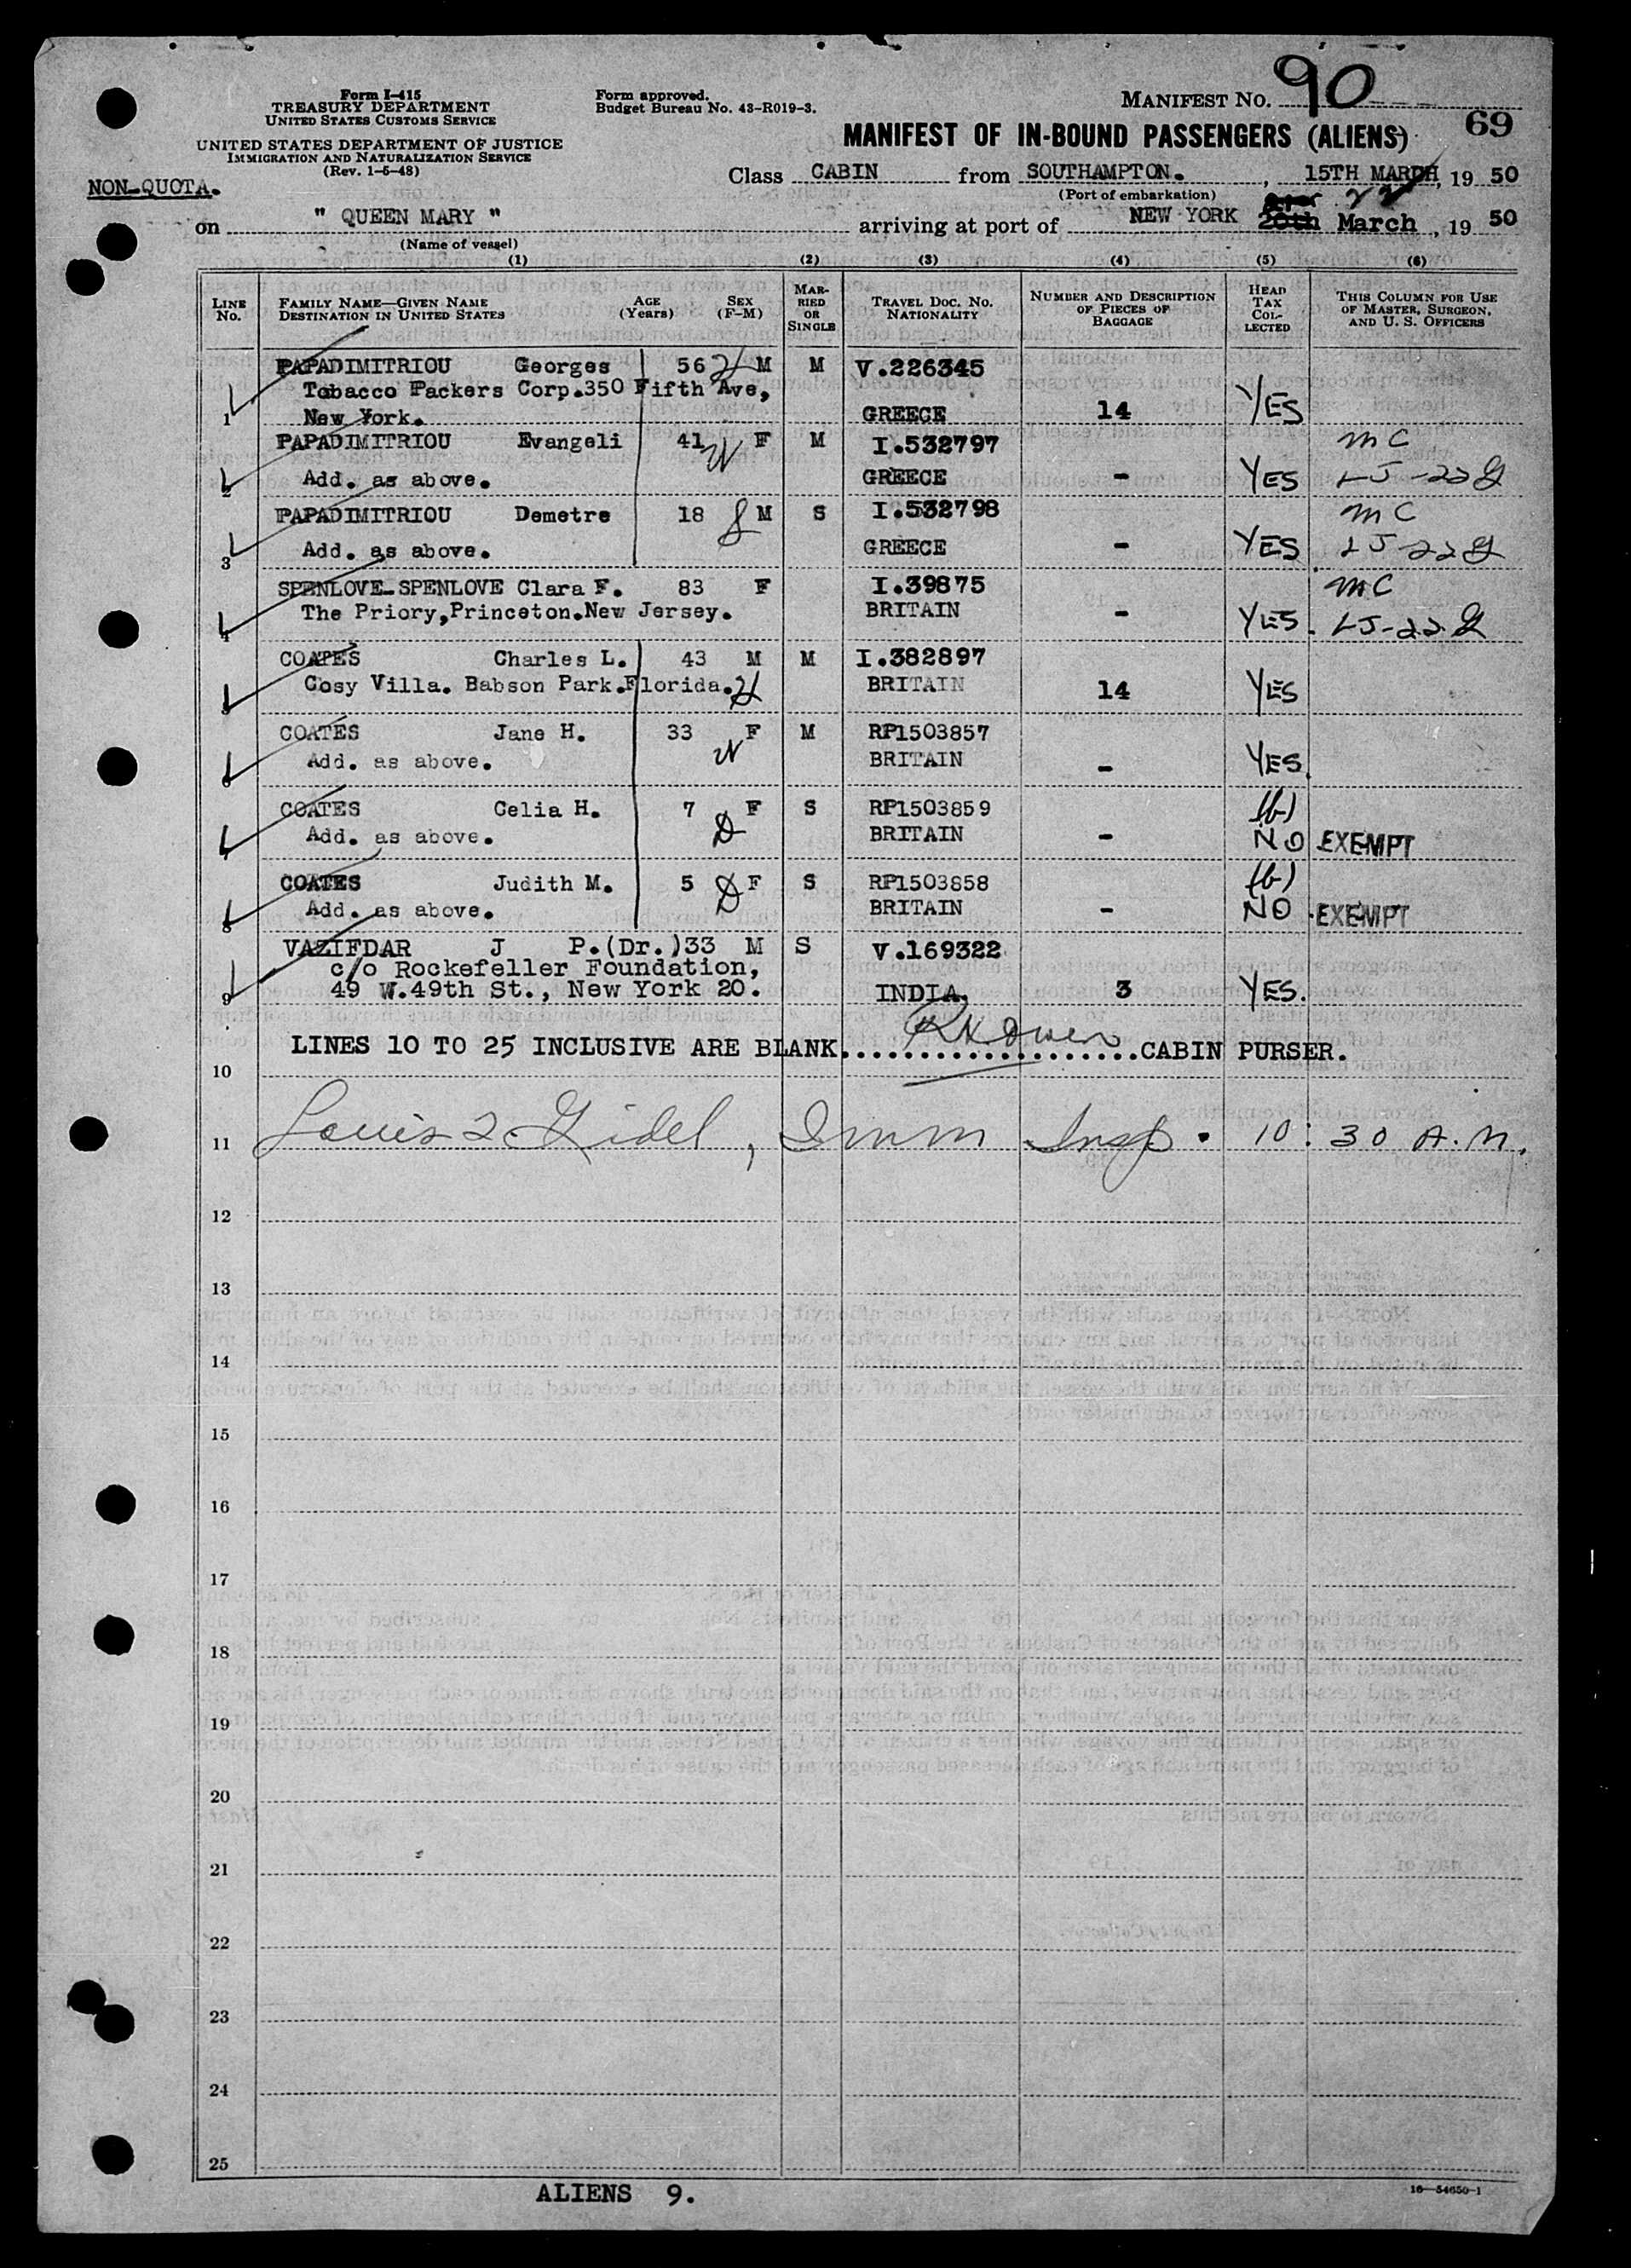 Form I-415
TREASURY DEPARTMENT
UNITED STATES CUSTOMS SERVICE
UNITED STATES DEPARTMENT OF JUSTICE
IMMIGRATION AND NATURALIZATION SERVICE
(Rev. 1-6-48)
Form approved.
Budget Bureau No. 43-R019-3.
MANIFEST NO. 90
69
MANIFEST OF IN-BOUND PASSENGERS (ALIENS)
NON-QUOTA.
Class CABIN from SOUTHAMPTON. , 15TH MARCH, 19 50
(Port of embarkation)
22
on " QUEEN MARY " arriving at port of NEW YORK 20th March , 19 50
(Name of vessel)
(1) (2) (3) (4) (5) (6)
LINE No. FAMILY NAME—GIVEN NAME DESTINATION IN UNITED STATES AGE (Years) SEX (F-M) MARRIED OR SINGLE TRAVEL DOC. NO. NATIONALITY NUMBER AND DESCRIPTION OF PIECES OF BAGGAGE HEAD TAX COLLECTED THIS COLUMN FOR USE OF MASTER, SURGEON, AND U. S. OFFICERS
PAPADIMITRIOU Georges 56 M M V.226345
Tobacco Packers Corp.350 Fifth Ave,
1 New York. GREECE 14 YES
PAPADIMITRIOU Evangeli 41 W F M I.532797 MC
2 Add. as above. GREECE - YES LJ-22
PAPADIMITRIOU Demetre 18 M S I.532798 MC
3 Add. as above. GREECE - YES LJ-22
SPENLOVE-SPENLOVE Clara F. 83 F I.39875 MC
4 The Priory,Princeton.New Jersey. BRITAIN - YES. LJ-22
COATES Charles L. 43 M M I.382897
5 Cosy Villa. Babson Park.Florida. BRITAIN 14 YES
COATES Jane H. 33 F M RP1503857
6 Add. as above. W BRITAIN - YES.
COATES Celia H. 7 F S RP1503859 (b)
7 Add. as above. D BRITAIN - NO EXEMPT
COATES Judith M. 5 D F S RP1503858 (b)
8 Add. as above. BRITAIN - NO EXEMPT
VAZIFDAR J P.(Dr.)33 M S V.169322
c/o Rockefeller Foundation,
9 49 W.49th St., New York 20. INDIA. 3 YES.
LINES 10 TO 25 INCLUSIVE ARE BLANK......................CABIN PURSER.
10
11 Louis Gidel, Imm Insp. 10:30 A.M.
12
13
14
15
16
17
18
19
20
21
22
23
24
25
ALIENS 9.
16—54650-1